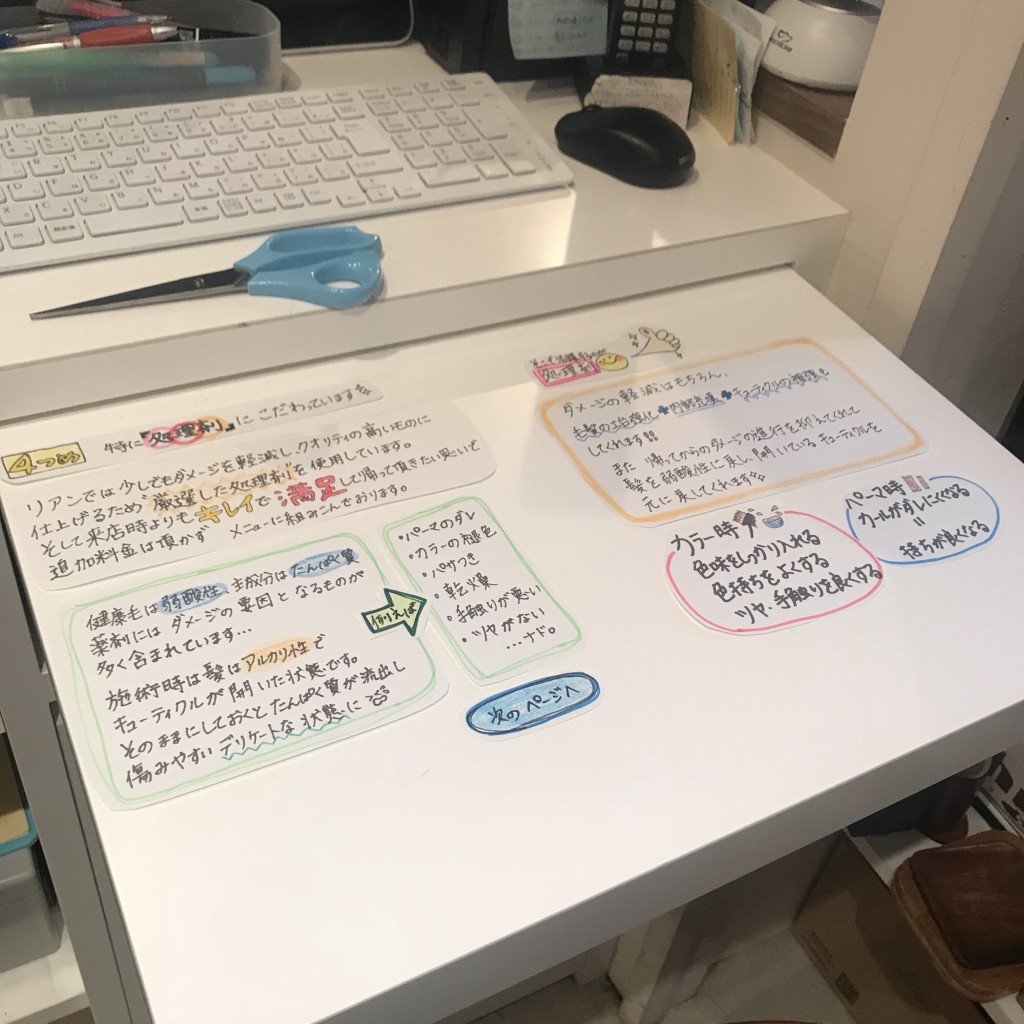 4つめ
特に『処理剤』にこだわっています
リアンでは少しでもダメージを軽減し、クオリティの高いものに
仕上げるため"厳選した処理剤"を使用しています。
そして来店時よりもキレイで満足して帰って頂きたい思いで
追加料金は頂かず メニューに組みこんでおります。
健康毛は弱酸性、主成分はたんぱく質
薬剤にはダメージの要因となるものが
多く含まれています…
施術時は髪はアルカリ性で
キューティクルが開いた状態です。
そのままにしておくとたんぱく質が流出し
傷みやすいデリケートな状態に
例えば
・パーマのダレ
・カラーの褪色
・パサつき
・乾燥
・手触りが悪い
・ツヤがない
…ナド。
次のページへ
処理剤
ダメージの軽減はもちろん、
毛髪の土台強化+内部充填+キューティクルの補強も
してくれます!!
また 帰ってからのダメージの進行を抑えてくれて
髪を弱酸性に戻し、開いているキューティクルを
元に戻してくれます
カラー時
色味をしっかり入れる
色持ちをよくする
ツヤ、手触りを良くする
パーマ時
カールがダレにくくなる
=
持ちが良くなる